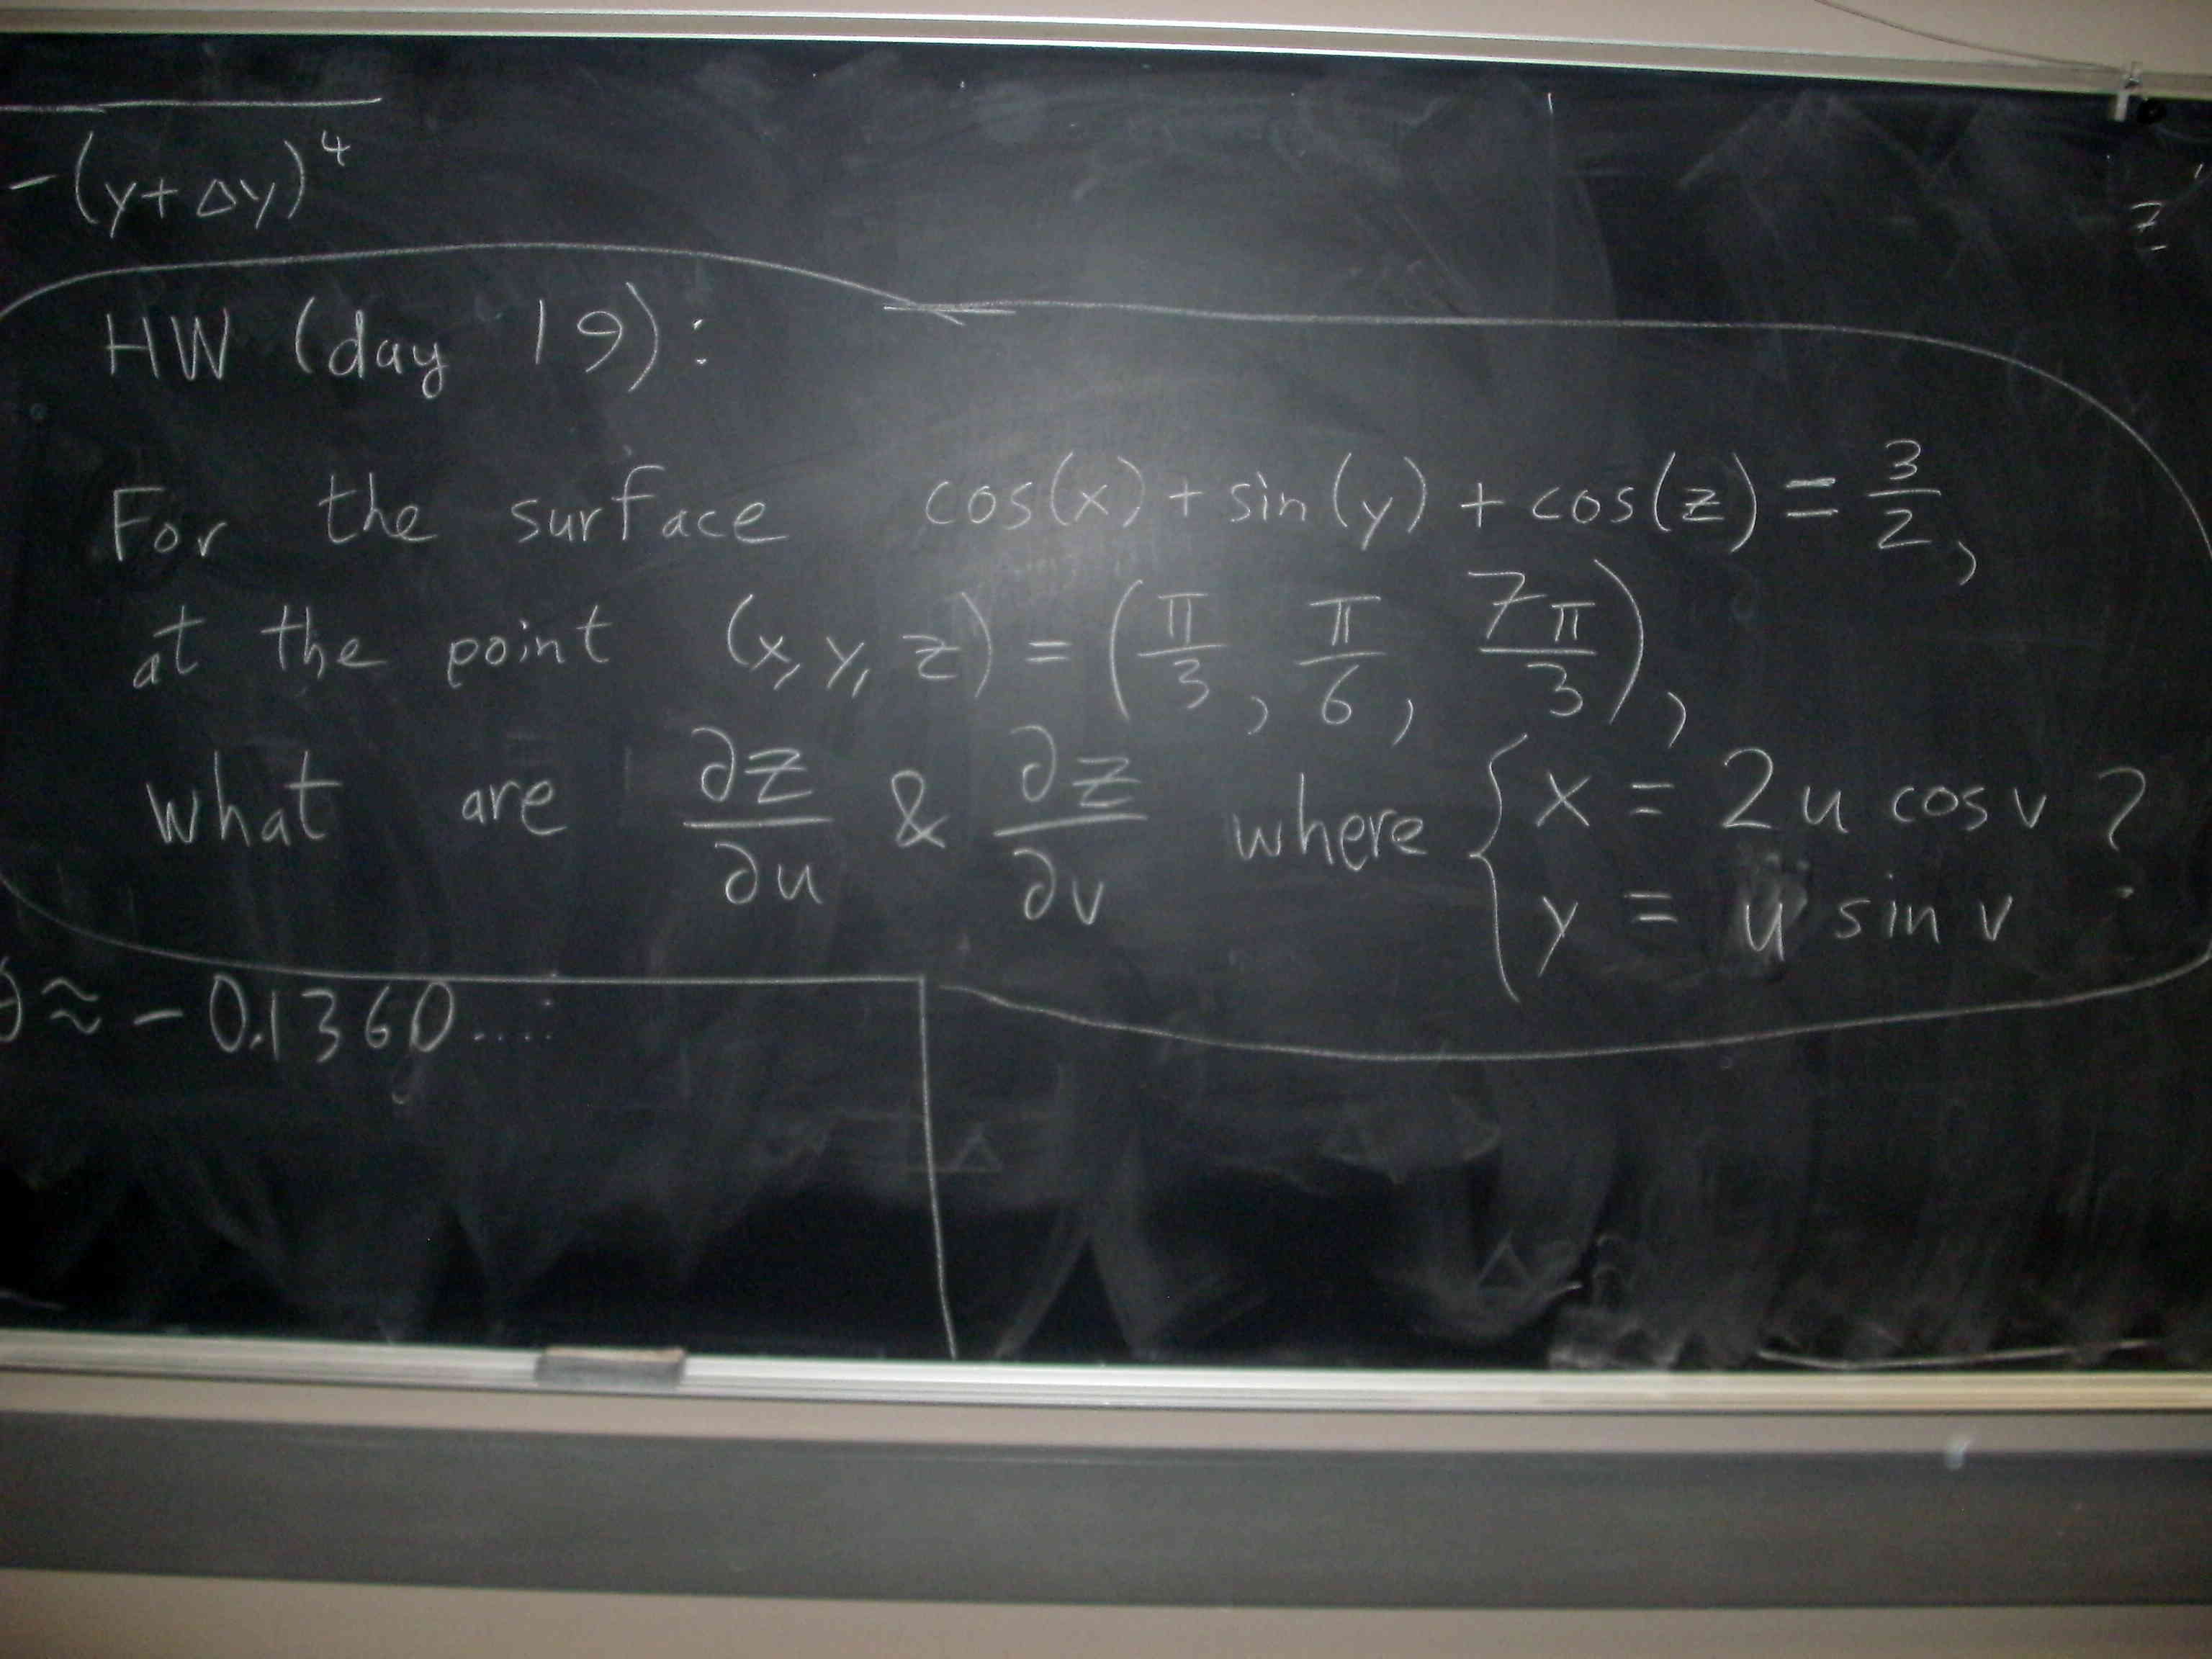 -(y+Δy)⁴
z
HW (day 19):
For the surface cos(x) + sin(y) + cos(z) = 3/2,
at the point (x, y, z) = (π/3, π/6, 7π/3),
what are ∂z/∂u & ∂z/∂v where { x = 2u cos v ?
y = u sin v
≈ - 0.1360....